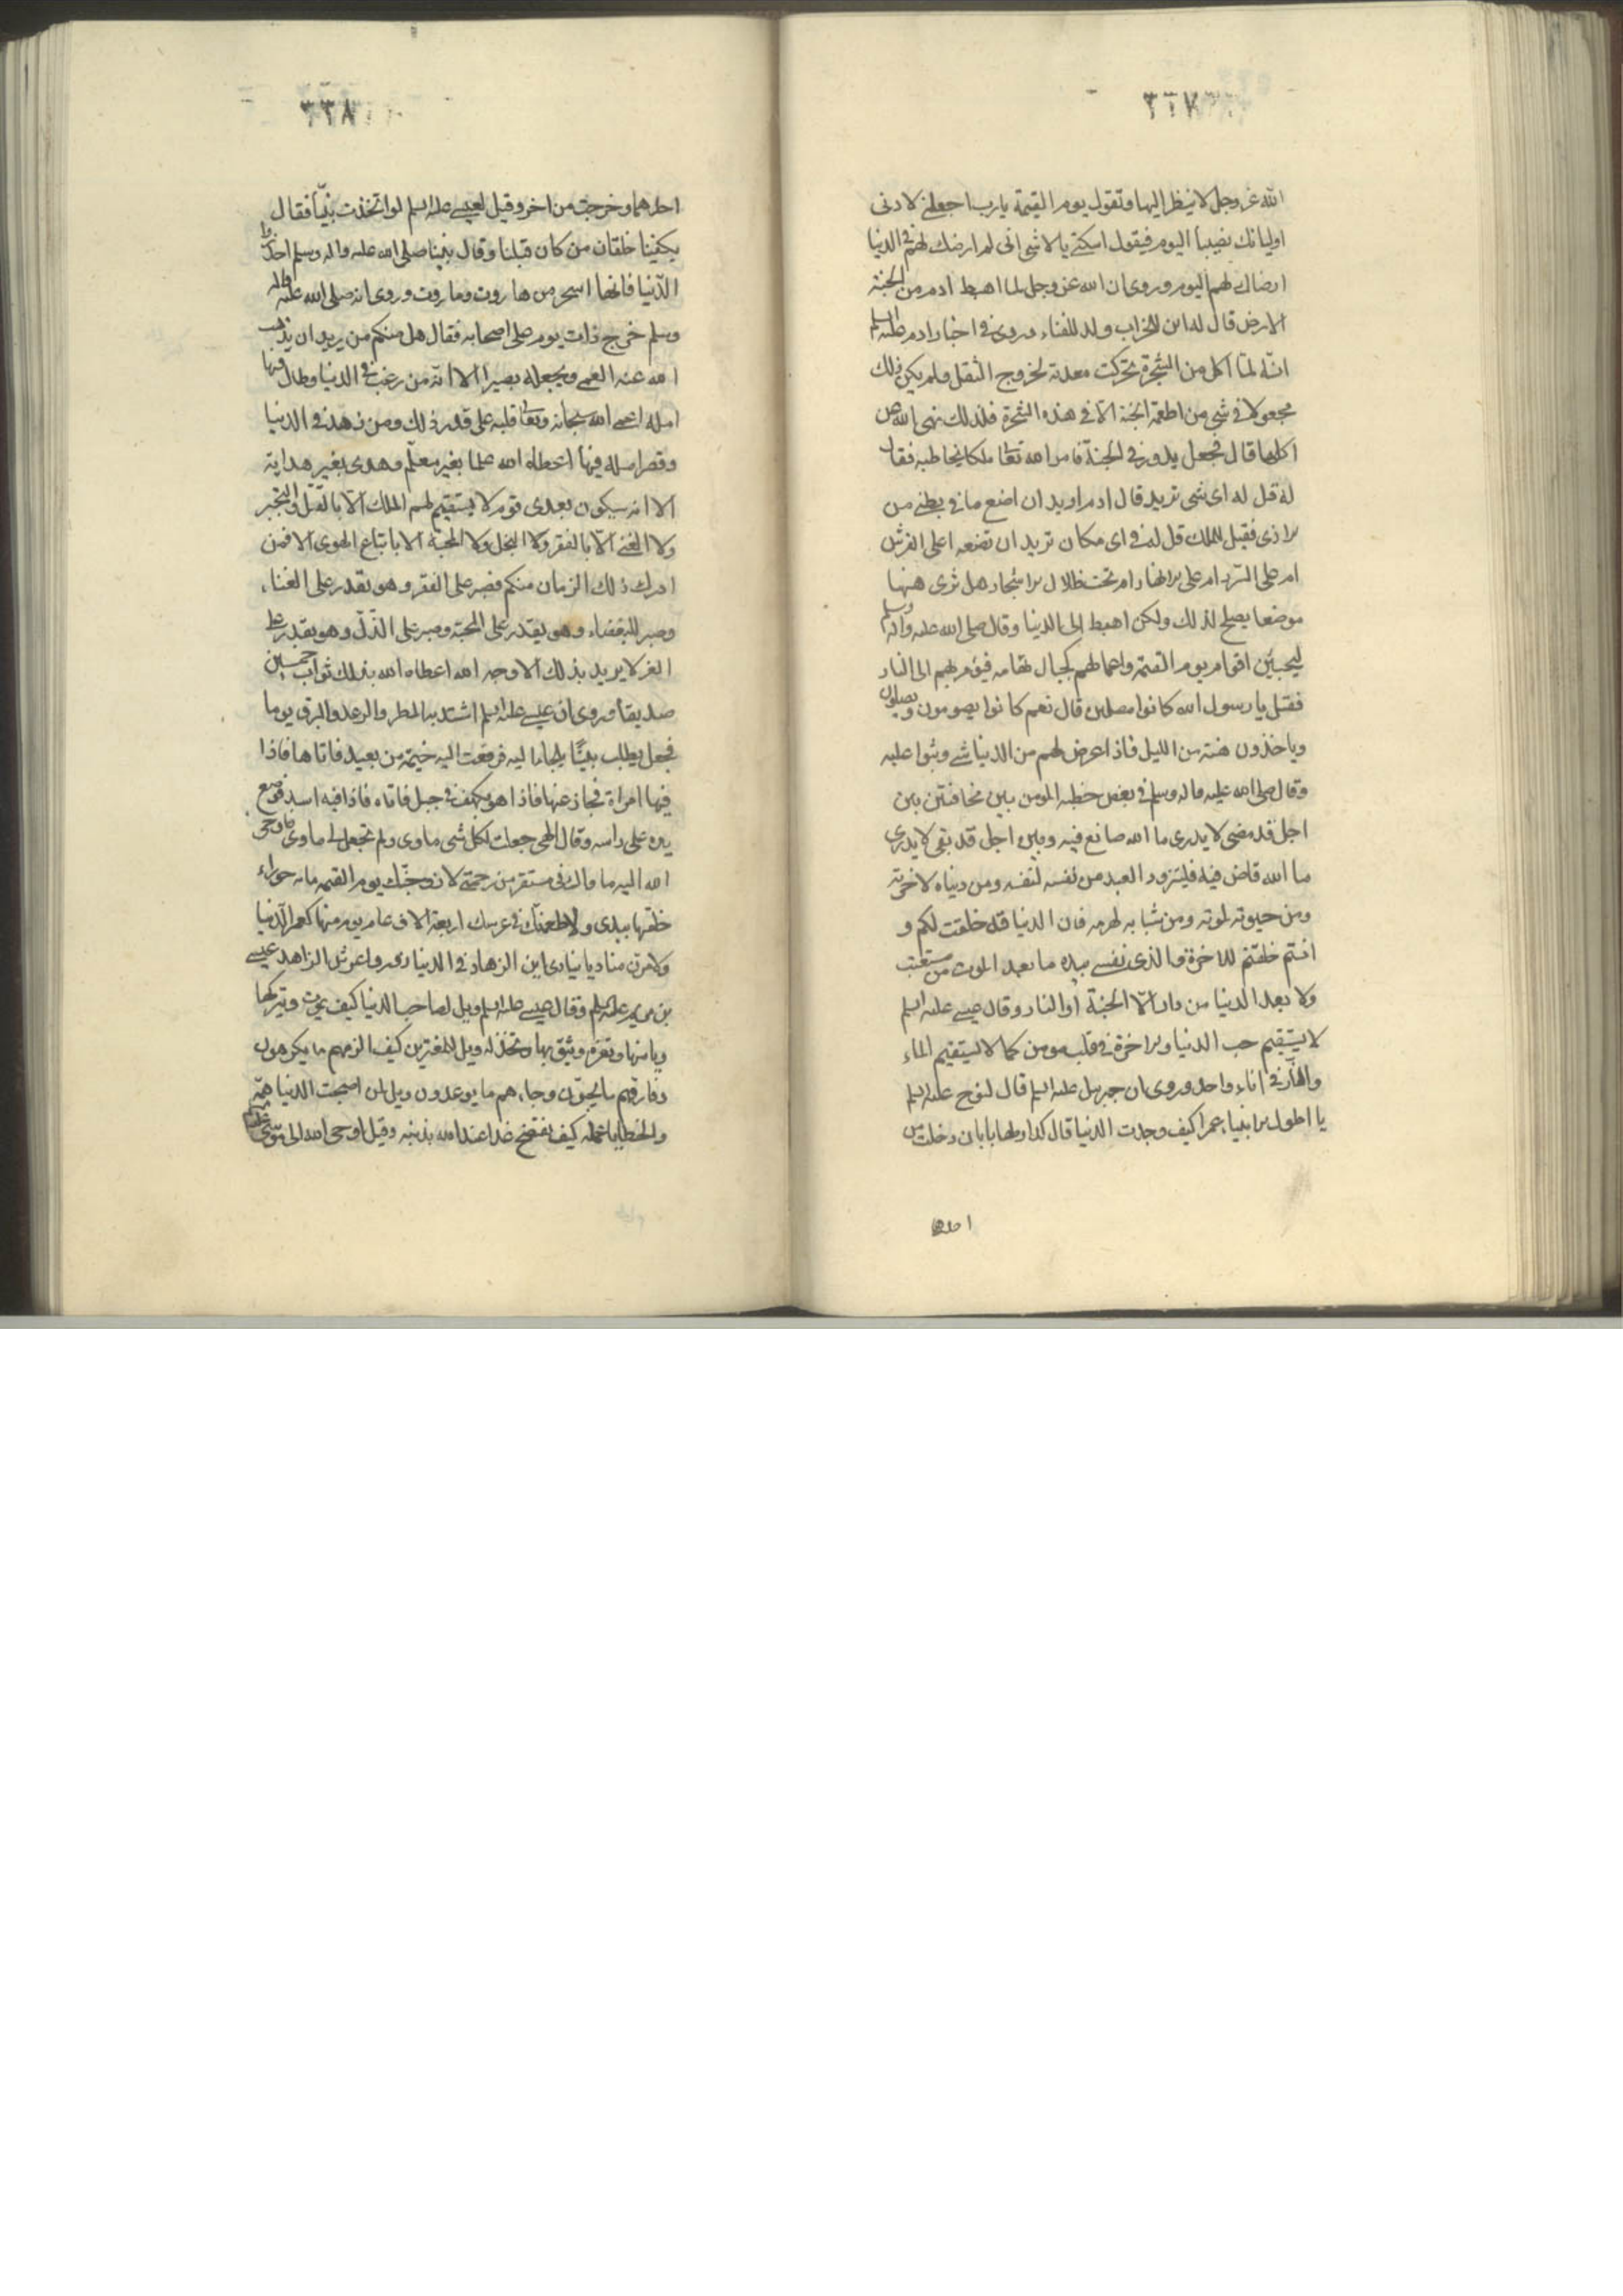 ٣٣٧
الله عز وجل لا ينظر اليها وتقول يوم القيمة يا رب اجعلني لادنى
اوليائك نصيبا اليوم فيقول اسكتي يا لا شى انى لم ارضك لهم في الدنيا
ارضاك لهم اليوم وروى ان الله عز وجل لما اهبط ادم من الجنة
الارض قال له ابن للخراب ولد للفناء وروى في اخبار ادم عليه السلم
انه لما اكل من الشجرة تحركت معدته لخروج الثفل ولم يكن ذلك
مجعولا في شى من اطعمة الجنة الا في هذه الشجرة فلذلك نهى الله عن
اكلها قال فجعل يدور في الجنة فامر الله تعا ملكا يخاطبه فقال
له قل له اى شى تريد قال ادم اريد ان اضع ما في بطنى من
الاذى فقيل للملك قل له في اى مكان تريد ان تضعه اعلى الفرش
ام على السرر ام على الانهار ام تحت ظلال الاشجار هل ترى هنها
موضعا يصلح لذلك ولكن اهبط الى الدنيا وقال صلى الله عليه واله وسلم
ليجيئن اقوام يوم القيمة واعمالهم كجبال تهامه فيؤمر بهم الى النار
فقيل يا رسول الله كانوا مصلين قال نعم كانوا يصومون ويصلون
وياخذون هنة من الليل فاذا عرض لهم من الدنيا شى وثبوا عليه
وقال صلى الله عليه واله وسلم في بعض خطبه المومن بين مخافتين بين
اجل قد مضى لا يدرى ما الله صانع فيه وبين اجل قد بقى لا يدرى
ما الله قاض فيه فليتزود العبد من نفسه لنفسه ومن دنياه لاخرته
ومن حيوته لموته ومن شبابه لهرمه فان الدنيا قد خلقت لكم و
انتم خلقتم للاخرة والذى نفسى بيده ما بعد الموت من مستعتب
ولا بعد الدنيا من دار الا الجنة او النار وقال عيسى عليه السلم
لا يستقيم حب الدنيا والاخرة في قلب مومن كما لا يستقيم الماء
والنار في اناء واحد وروى ان جبريل عليه السلم قال لنوح عليه السلم
يا اطول الانبياء عمرا كيف وجدت الدنيا قال كدار لها بابان دخلت من
احدهما
٣٣٨
احدهما وخرجت من اخر وقيل لعيسى عليه السلم لو اتخذت بيتا فقال
يكفينا خلقان من كان قبلنا وقال نبينا صلى الله عليه واله وسلم احذروا
الدنيا فانها اسحر من هاروت وماروت وروى انه صلى الله عليه واله
وسلم خرج ذات يوم على اصحابه فقال هل منكم من يريد ان يذهب
الله عنه العمى ويجعله بصيرا الا انه من رغب في الدنيا وطال فيها
امله اعمى الله سبحانه وتعا قلبه على قدر ذلك ومن زهد في الدنيا
وقصر امله فيها اعطاه الله علما بغير معلم وهدى بغير هداية
الا انه سيكون بعدى قوم لا يستقيم لهم الملك الا بالقتل والتجبر
ولا الغنى الا بالفقر ولا البخل ولا المحبة الا باتباع الهوى الا فمن
ادرك ذلك الزمان منكم فصبر على الفقر وهو يقدر على الغناء
وصبر للبغضاء وهو يقدر على المحبة وصبر على الذل وهو يقدر على
العز لا يريد بذلك الا وجه الله اعطاه الله بذلك ثواب خمسين
صديقا وروى ان عيسى عليه السلم اشتد به المطر والرعد والبرق يوما
فجعل يطلب بيتا يلجأ اليه فرفعت اليه خيمة من بعيد فاتاها فاذا
فيها امراة فجاز عنها فاذا هو بكهف في جبل فاتاه فاذا فيه اسد فوضع
يده على راسه وقال الهى جعلت لكل شى ماوى ولم تجعل لى ماوى فاوحى
الله اليه ماواك في مستقر من رحمتى لازوجنك يوم القيمه مائه حوراء
خلقتها بيدى ولاطعمنك في عرسك اربعة الاف عام يوم منها كعمر الدنيا
ولامرن مناديا ينادى اين الزهاد في الدنيا زوروا عرس الزاهد عيسى
بن مريم عليه السلم وقال عيسى عليه السلم ويل لصاحب الدنيا كيف يموت ويتركها
ويامنها وتغره ويثق بها وتخذله ويل للمغترين كيف الزمهم ما يكرهون
وفارقهم ما يحبون وجاءهم ما يوعدون ويل لمن اصبحت الدنيا همه
والخطايا عمله كيف يفتضح غدا عند الله بذنبه وقيل اوحى الله الى موسى عليه